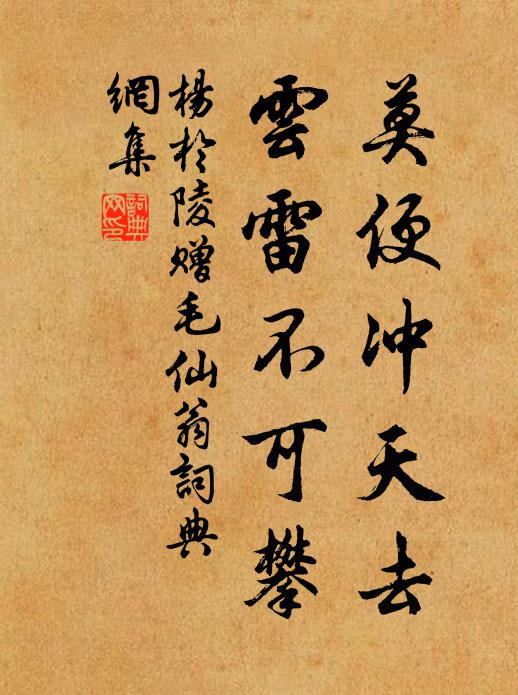 莫便冲天去
雲雷不可攀
楊於陵贈毛仙翁詞典
網集
詞典
网印